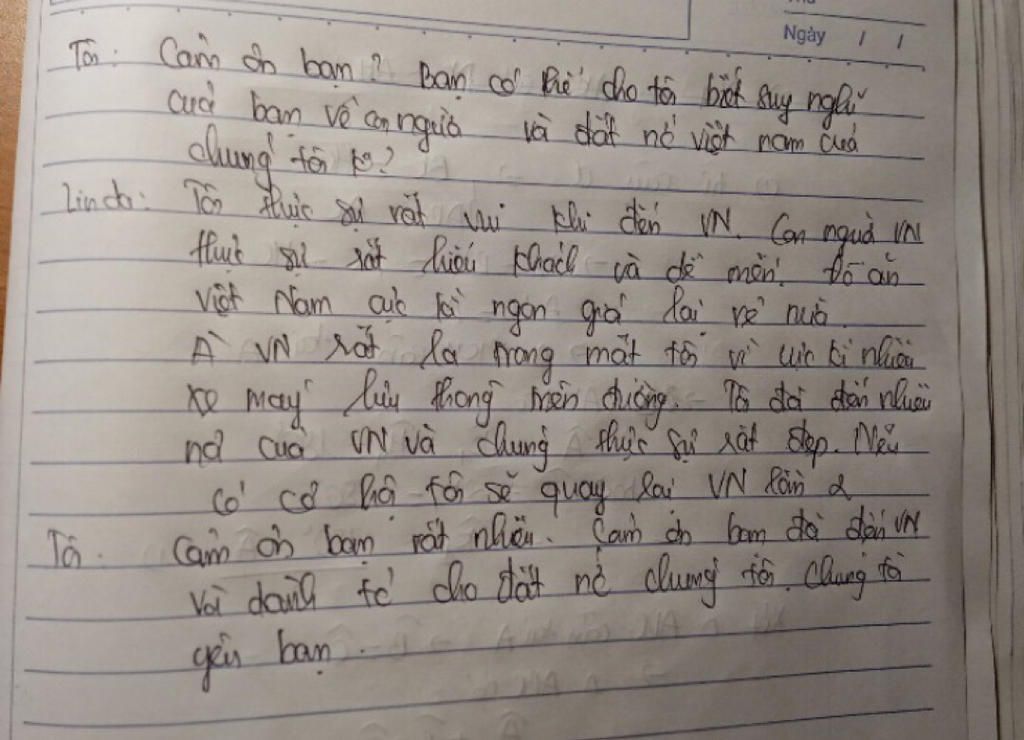 Ngày / /
Tôi: Cảm ơn bạn? Bạn có thể cho tôi biết suy nghĩ
của bạn về con người và đất nc việt nam của
chúng tôi ko?
Linda: Tôi thực sự rất vui khi đến VN. Con người VN
thực sự rất hiếu khách và dễ mến. Đồ ăn
Việt Nam cực kì ngon giá lại rẻ nữa.
À VN rất lạ trong mắt tôi vì cực kì nhiều
xe máy lưu thông trên đường. Tôi đã đến nhiều
nơi của VN và chúng thực sự rất đẹp. Nếu
có cơ hội tôi sẽ quay lại VN lần 2
Tôi: Cảm ơn bạn rất nhiều. Cảm ơn bạn đã đến VN
và dành tc cho đất nc chúng tôi. Chúng tôi
yêu bạn.